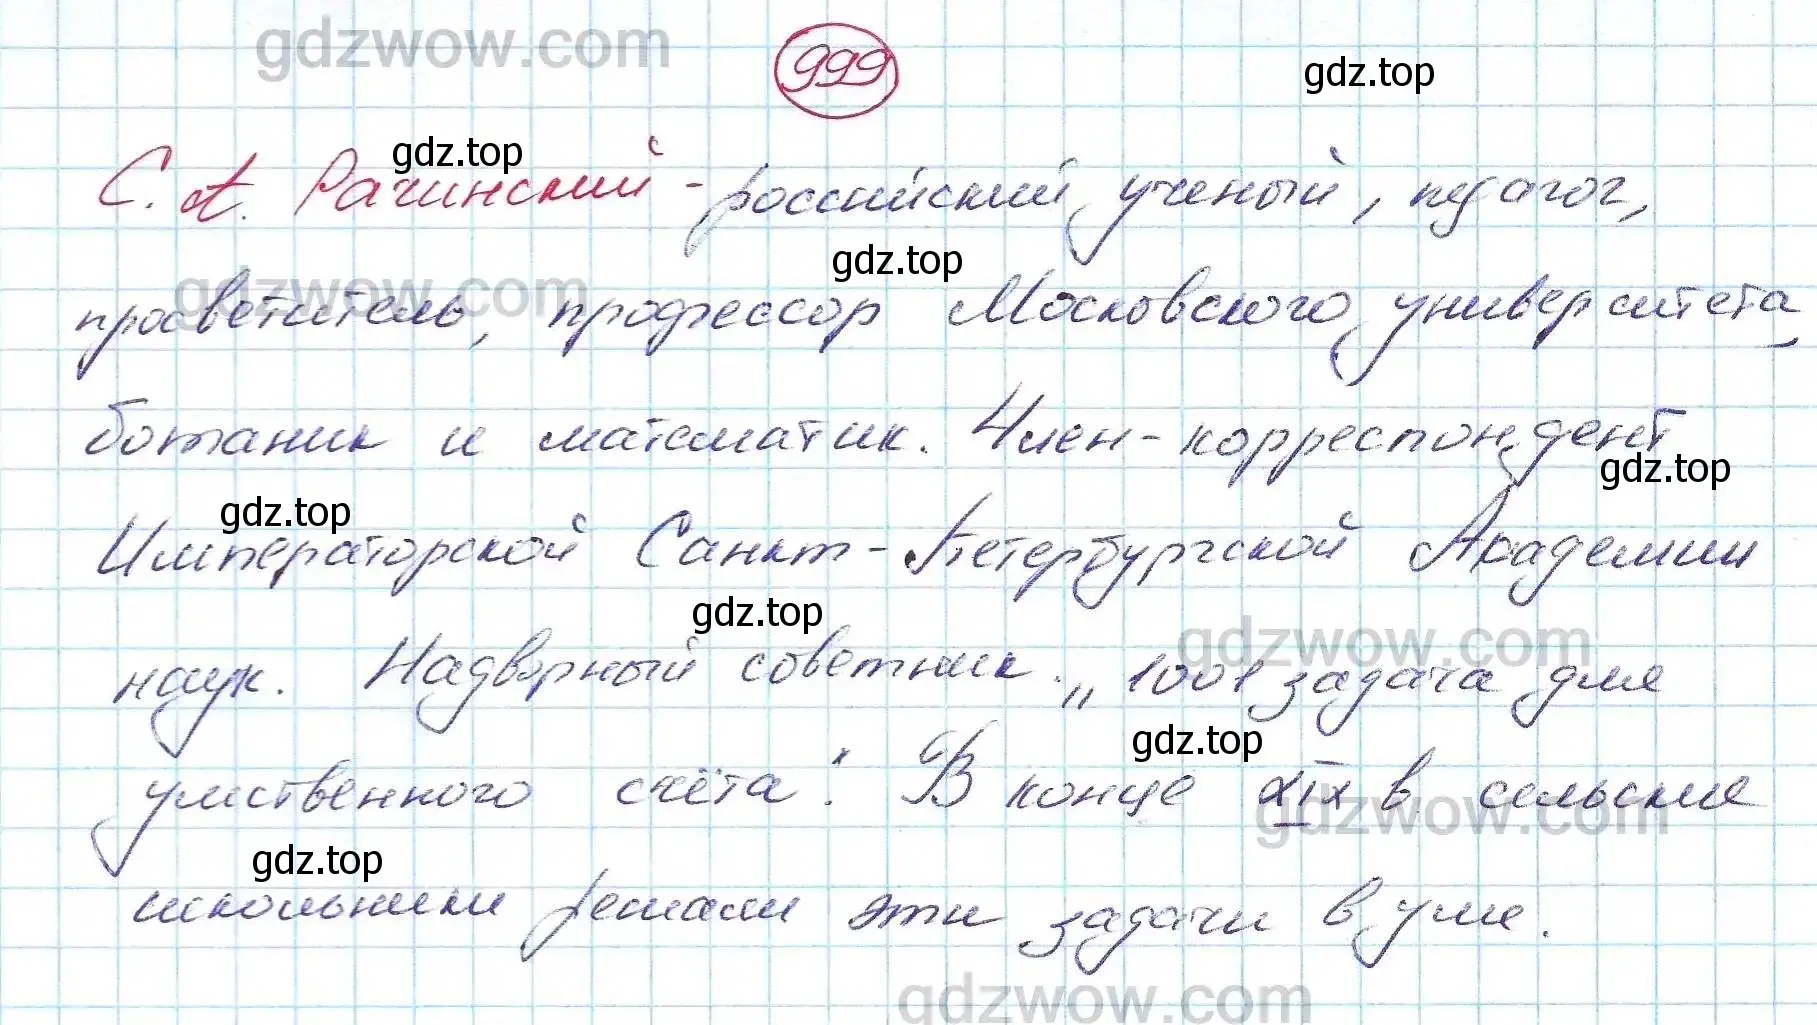 gdzwow.com
999
gdz.top
gdz.top
С. А. Рачинский - российский ученый, педагог,
gdz.top
gdzwow.com
просветитель, профессор Московского университета,
ботаник и математик. Член-корреспондент
gdz.top
gdz.top
Императорской Санкт-Петербургской Академии
gdz.top
gdzwow.com
наук. Надворный советник. „1001 задача для
gdz.top
умственного счёта". В конце XIX в сельские
gdzwow.com
gdz.top
школьники решали эти задачи в уме.
gdzwow.com